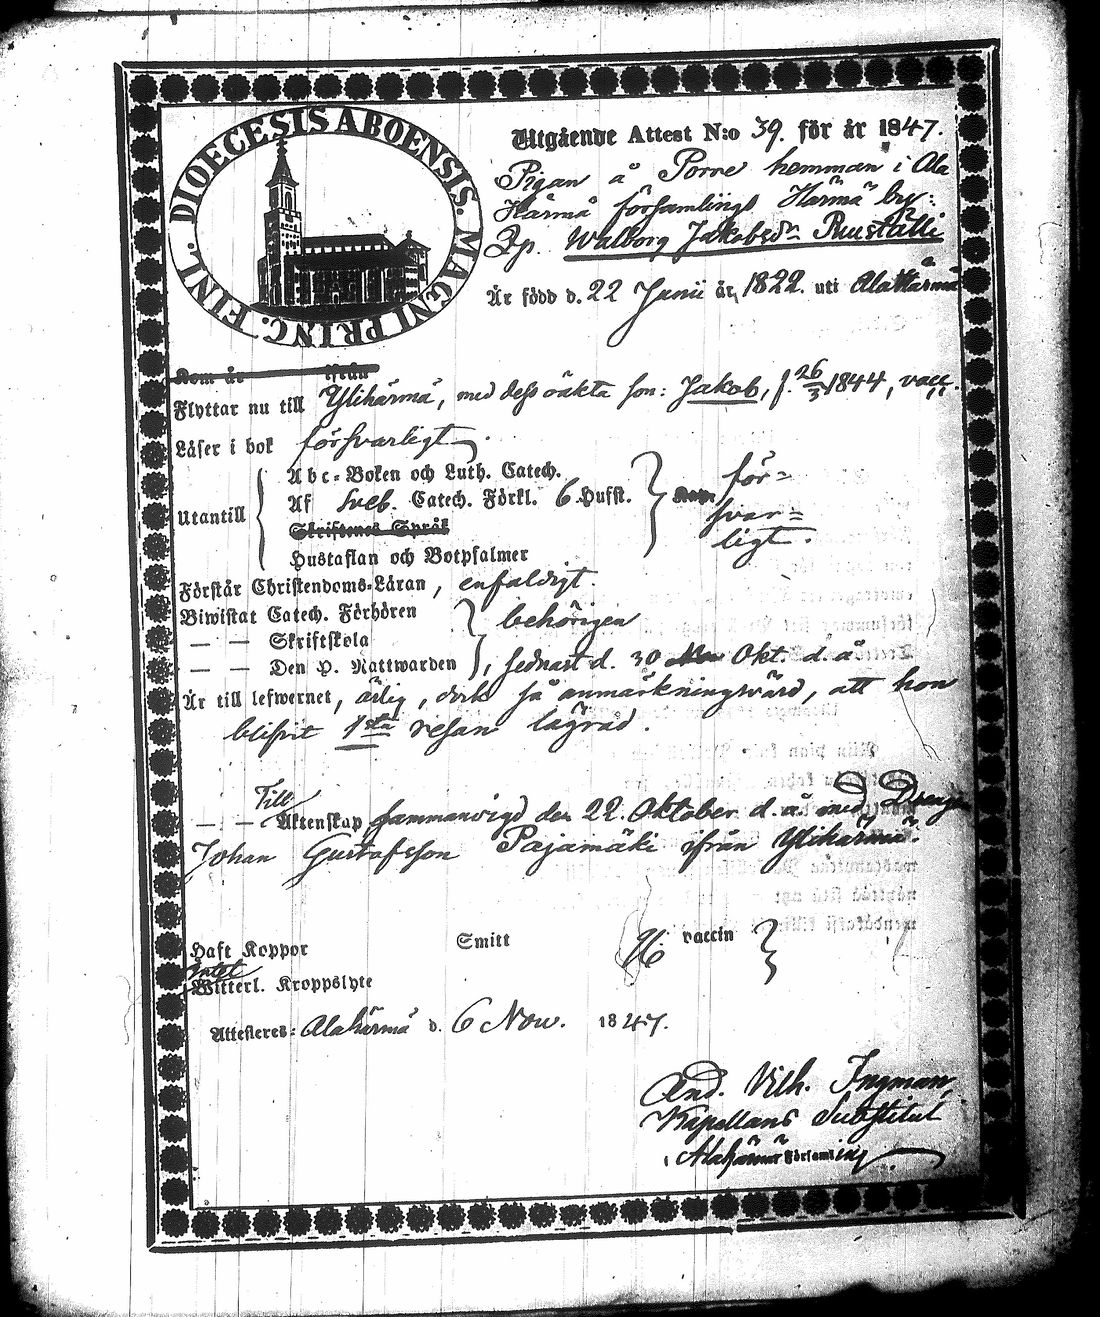 DIOECESIS ABOENSIS. MAGNI PRINC. FINL.
Utgående Attest N:o 39. för år 1847.
Pigan å Porre hemman i Ala
Härmä församlings Härmä by:
Walborg Jakobsdr Ruuställi
Är född d. 22 Junii år 1822. uti Alahärmä
Kom år ifrån
Flyttar nu till Ylihärmä, med dess oäkta son: Jakob, f. 26/3 1844, vacc.
Läser i bok försvarligt.
Abc-Boken och Luth. Catech.
Utantill Af Sveb. Catech. Förkl. 6 Hufst. för=
Skriftenes Språk svar=
Hustaflan och Botpsalmer ligt.
Förstår Christendoms-Läran, enfaldigt.
Biwistat Catech. Förhören
— — Skriftskola behörigen
— — Den H. Nattwarden, sednast d. 30 Okt. d. å.
Är till lefwernet, ärlig, dock så anmärkningsvärd, att hon
blifvit 1sta resan lägrad.
Till
— — Äktenskap sammanvigd den 22 Oktober d. å. med Drengen
Johan Gustafsson Pajamäki ifrån Ylihärmä.
Haft Koppor Smitt vaccin
Intet
Witterl. Kroppslyte
Attesteres: Alahärmä d. 6 Nov. 1847.
And. Vilh. Ingman,
Kapellans Substitut
i Alahärmä Församling